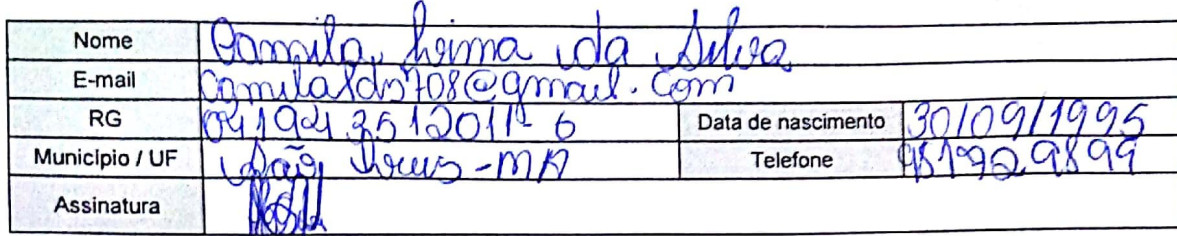 Nome Camila Lima da Silva
E-mail camilalds708@gmail.com
RG 041943512011-6 Data de nascimento 30/09/1995
Município / UF São Luis - MA Telefone
Assinatura